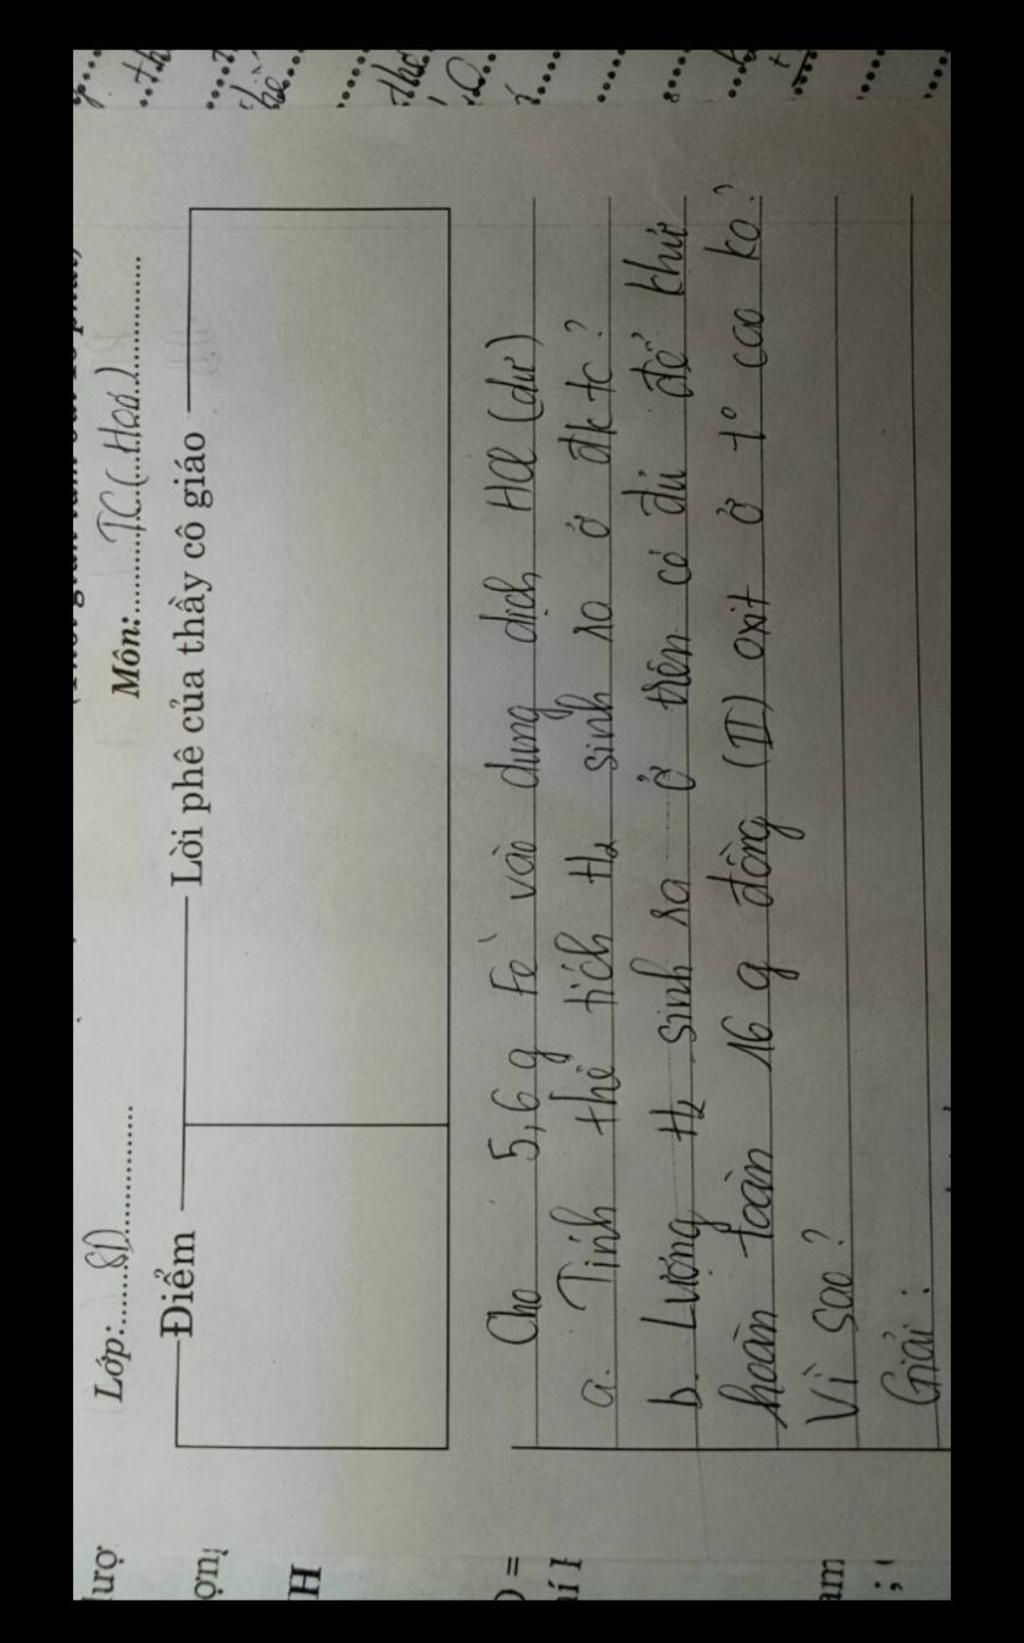 Lớp:......8D...............
Môn:..........TC(..Hoá)...............
Điểm
Lời phê của thầy cô giáo
Cho 5,6 g Fe vào dung dịch HCl (dư)
a. Tính thể tích H₂ sinh ra ở đktc?
b. Lượng H₂ sinh ra ở trên có đủ để khử
hoàn toàn 16 g đồng (II) oxit ở t° cao ko?
Vì sao?
Giải: